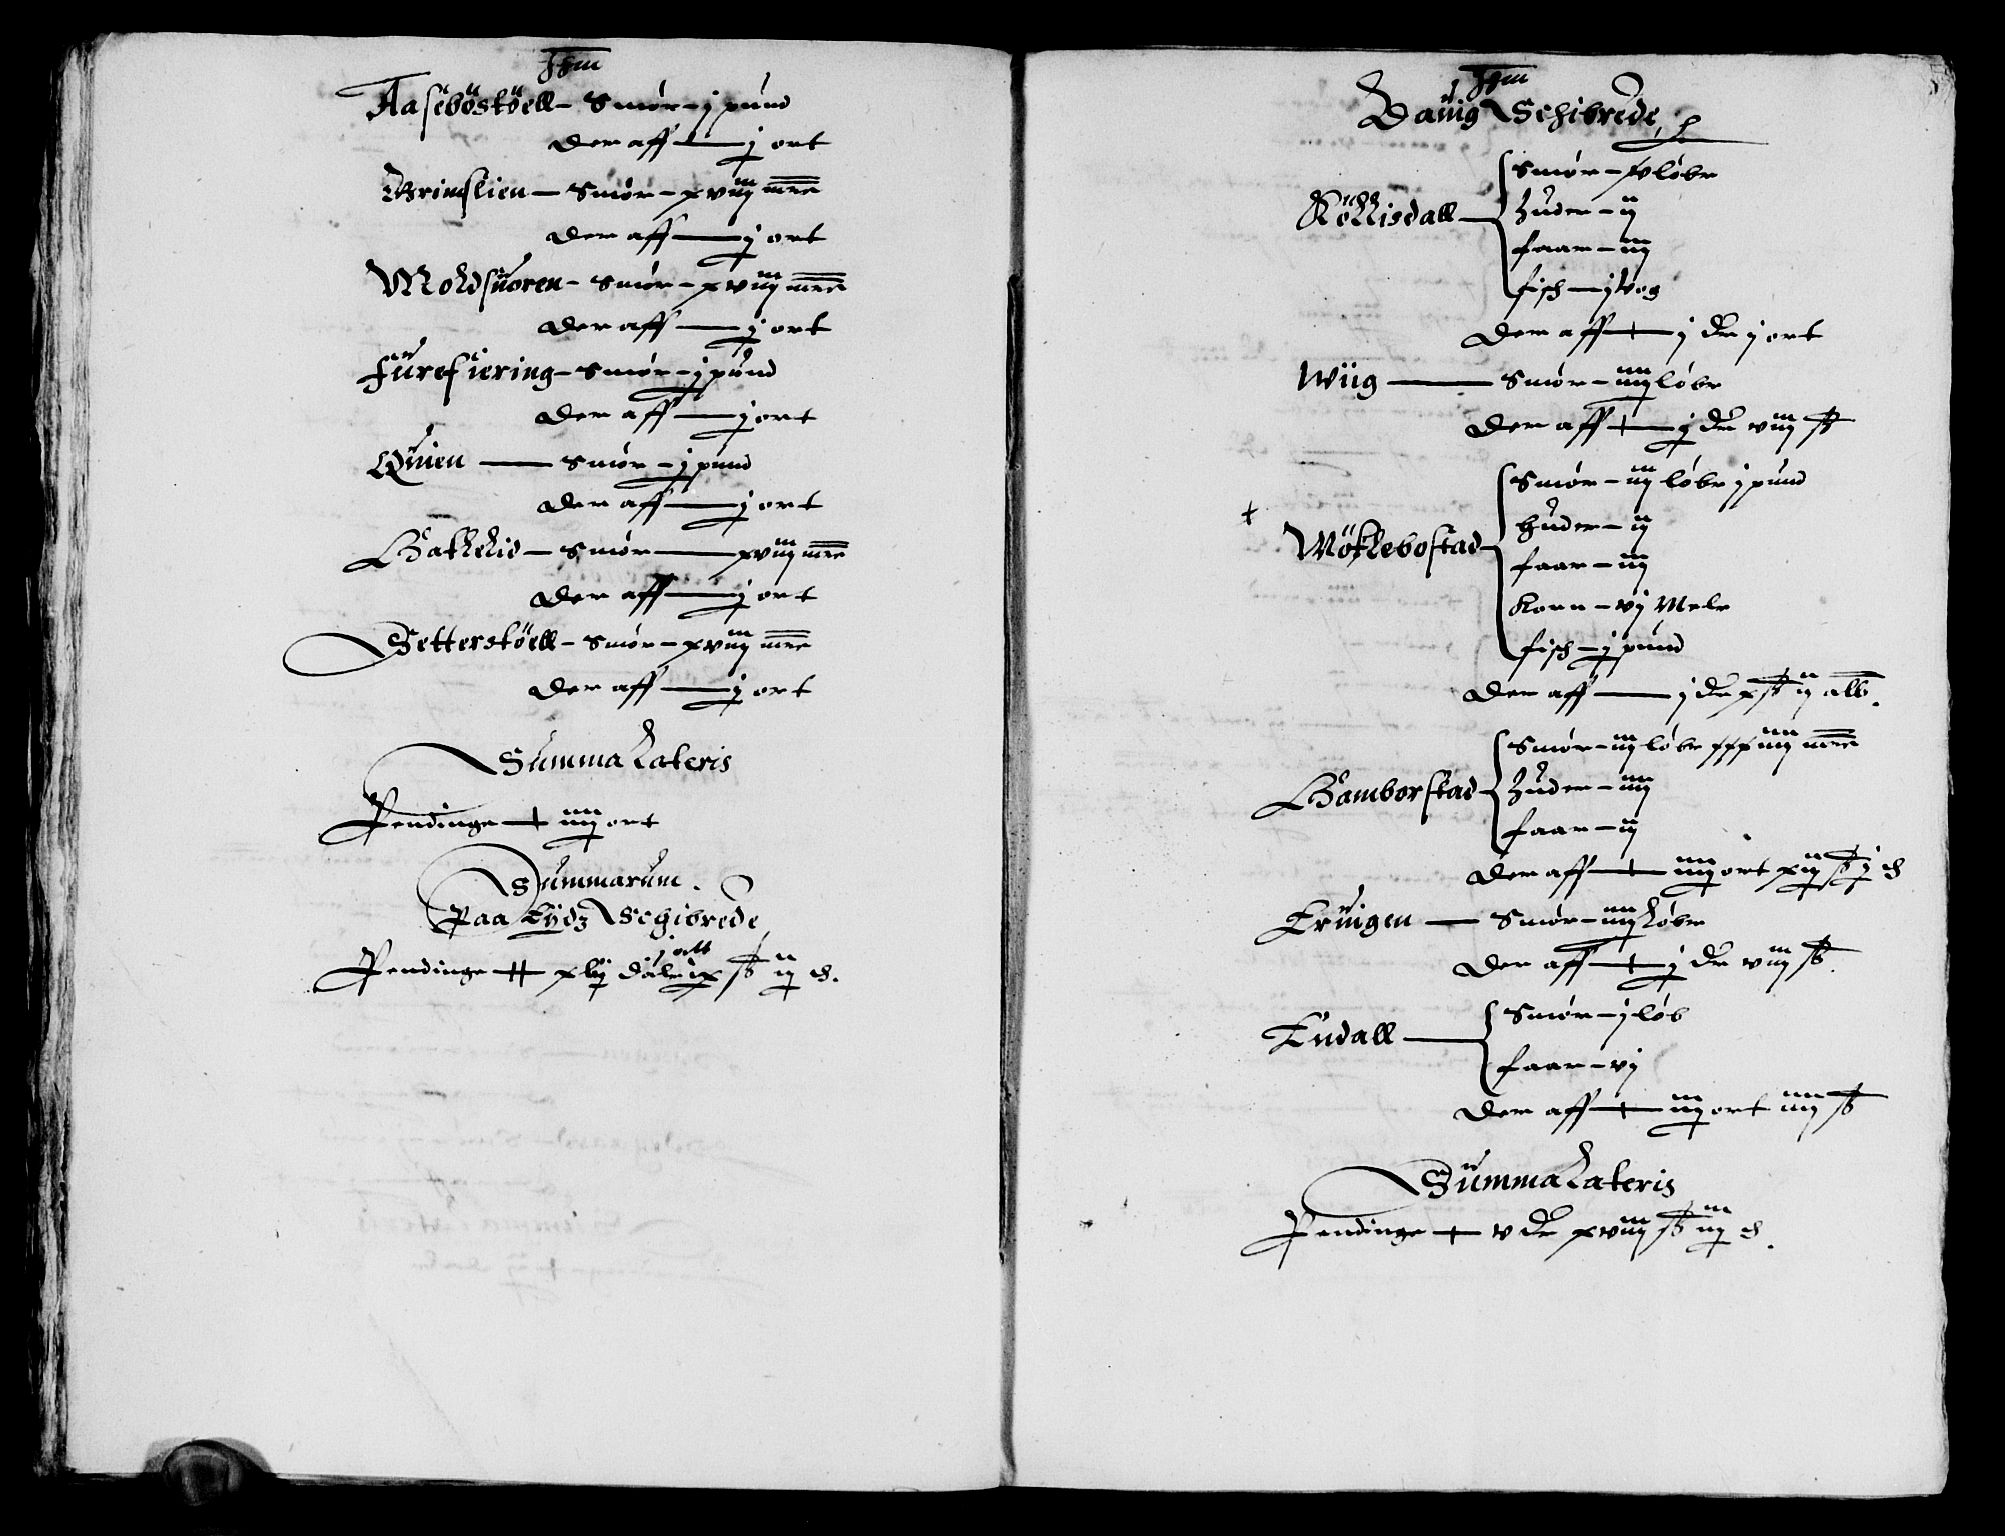 Aasebøstøell – Smør – j pund
Der aff — j ort
Grimslien – Smør – xviij mrc
Der aff — j ort
Moldsuoren – Smør – xviij mrc
Der aff — j ort
Furesiering – Smør – j pund
Der aff — j ort
Quien — Smør – j pund
Der aff — j ort
Backelid – Smør — xviij mrc
Der aff — j ort
Setterstøell – Smør – xviij mrc
Der aff — j ort
Summa Lateris
Pendinge — iiij ort
Summarum
Paa Eydz Schibrede
Pendinge — xlij daler ix ß ij d.
Dauig Schibrede
Køllisdall — Smør – løbe
Huder – ij
faar – iij
fisch – j Vog
Der aff — j dr j ort
Wiig — Smør – iiij løbe
Der aff — j dr viij ß
Møklebostad – Smør – iij løbe j pund
Huder – ij
faar – iij
Korn – vj Mele
fisch – j pund
Der aff — j dr x ß ij alb.
Bamborstad – Smør – iij løbe xxxiiij mrc
Huder – iiij
faar – ij
Der aff — iiij ort xij ß j d
Eruigen — Smør – iiij løbe
Der aff — j dr viij ß
Endall — Smør – j løb
faar – vj
Der aff — iij ort iiij ß
Summa Lateris
Pendinge — v dr xviij ß iij d.